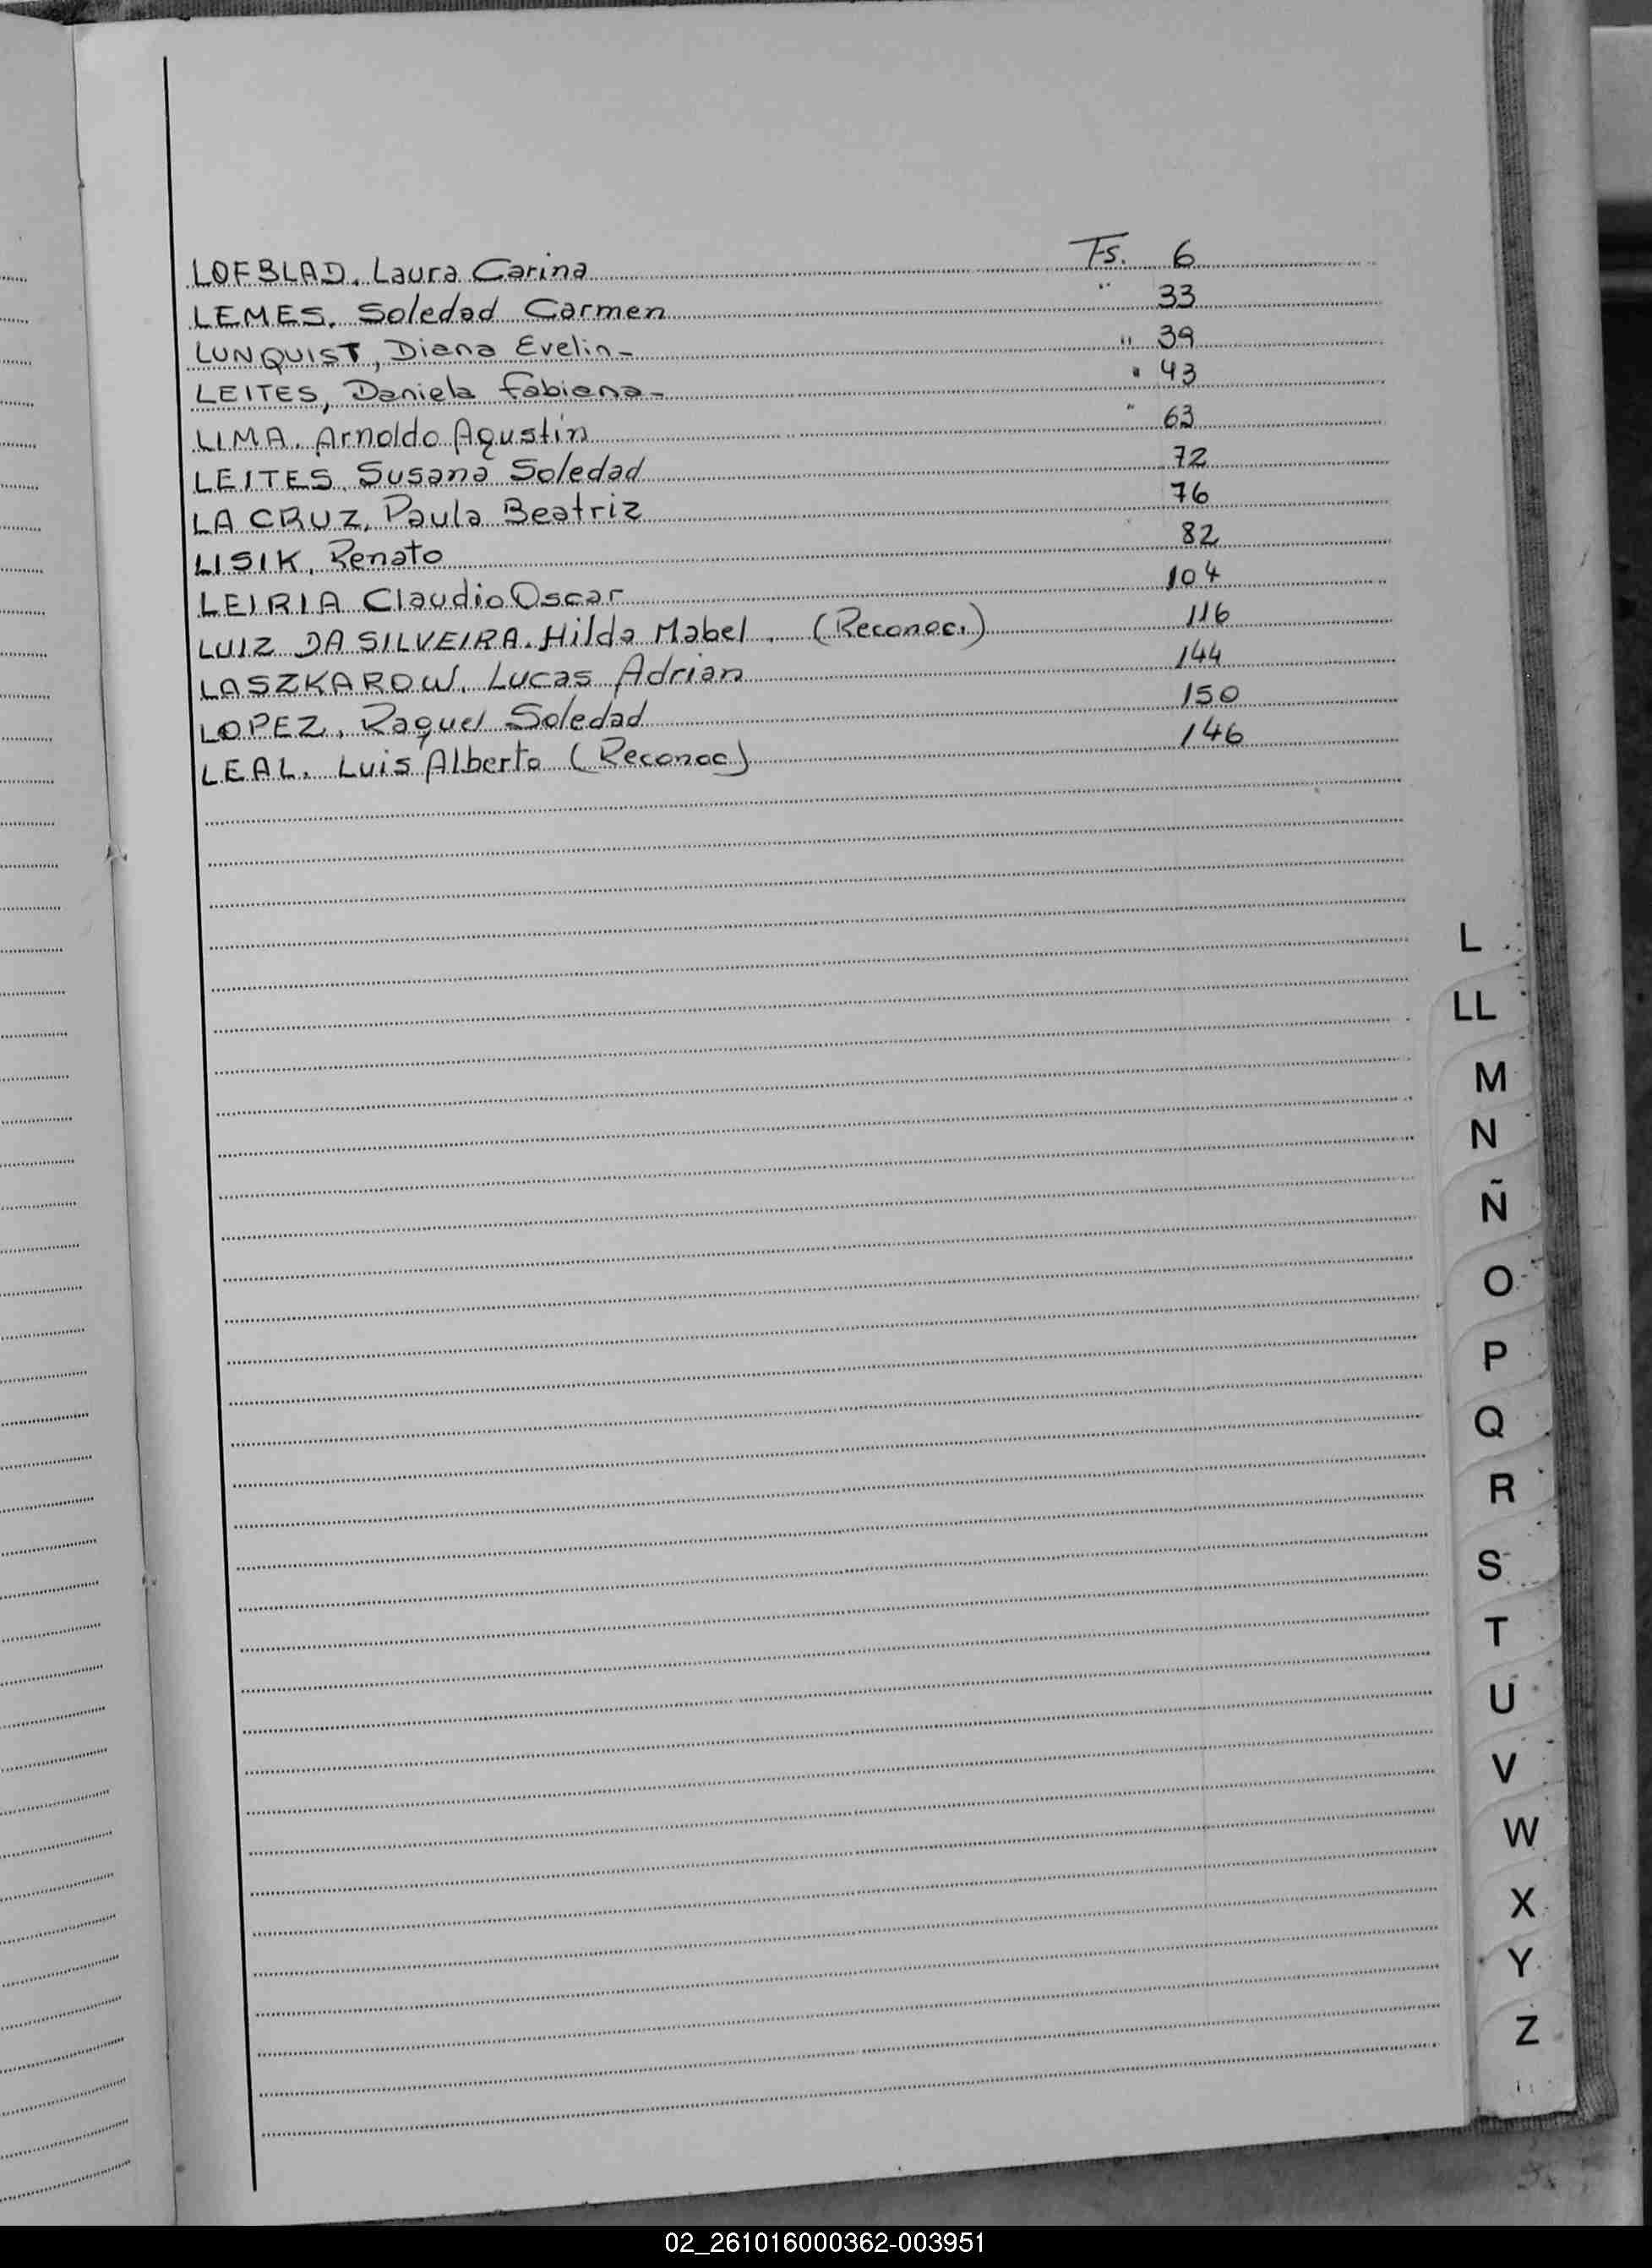 LOFBLAD, Laura Carina Fs. 6
LEMES, Soledad Carmen " 33
LUNQUIST, Diana Evelin- " 39
LEITES, Daniela Fabiana- " 43
LIMA, Arnoldo Agustín " 63
LEITES, Susana Soledad 72
LA CRUZ, Paula Beatriz 76
LISIK, Renato 82
LEIRIA Claudio Oscar 104
LUIZ DA SILVEIRA, Hilda Mabel, (Reconoc.) 116
LASZKAROW, Lucas Adrian 144
LOPEZ, Raquel Soledad 150
LEAL, Luis Alberto (Reconoc) 146
L
LL
M
N
Ñ
O
P
Q
R
S
T
U
V
W
X
Y
Z
02_261016000362-003951